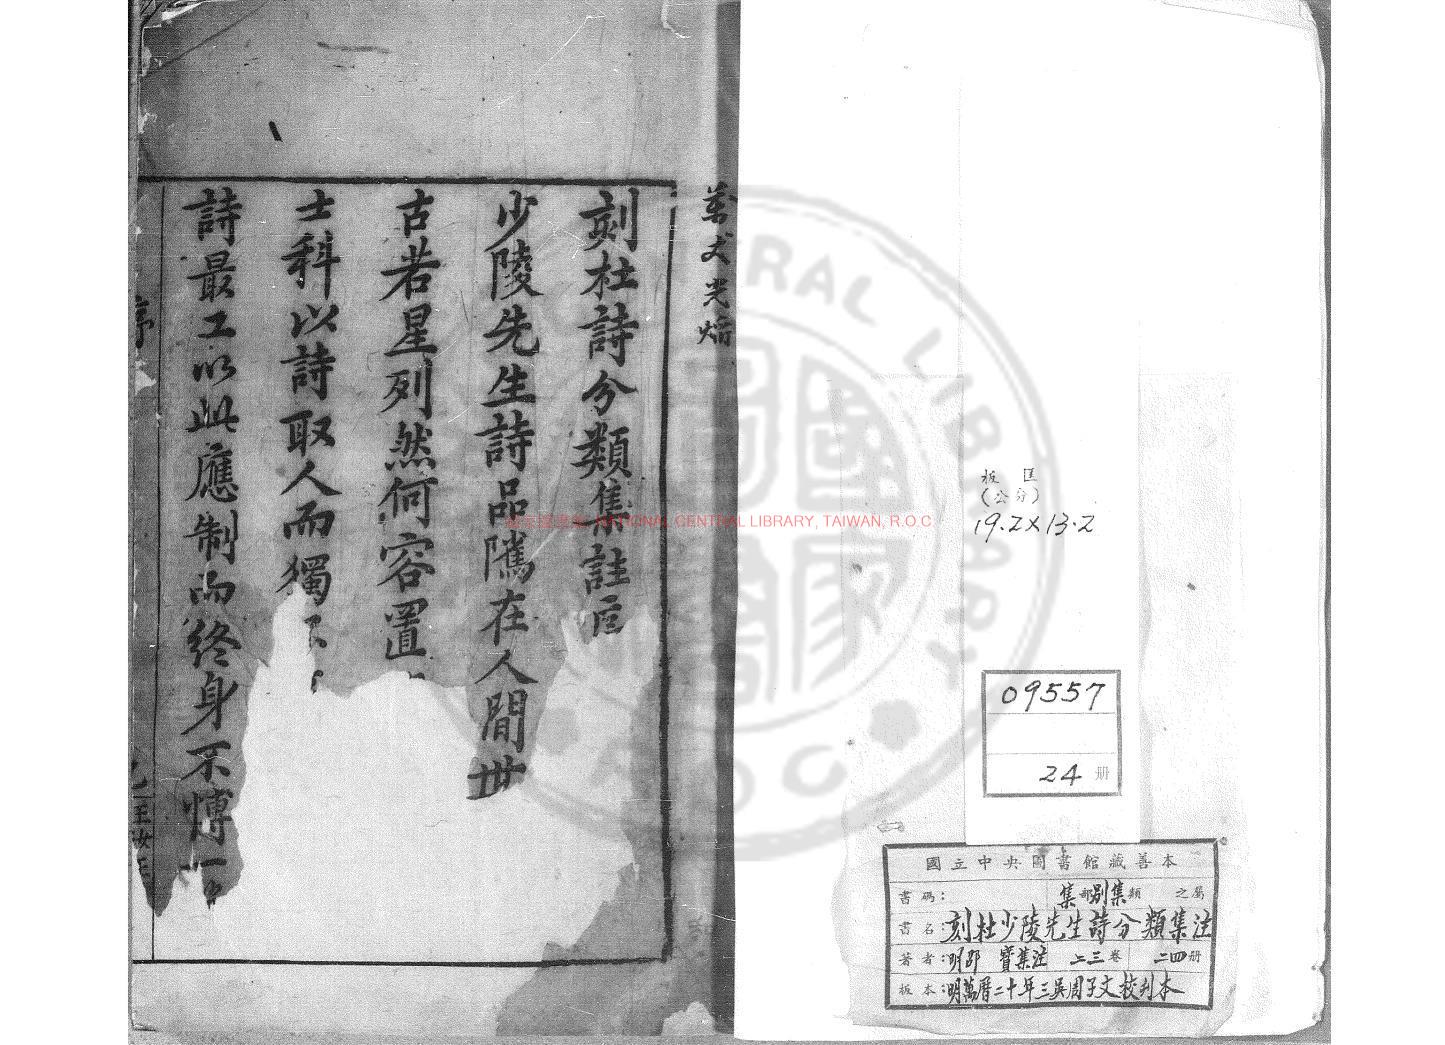 板匡
(公分)
19.2×13.2
09557
24 册
國立中央圖書館藏善本
書碼: 集部別集類 之屬
書名:刻杜少陵先生詩分類集注
著者:明邵寶集注 二三卷 二四册
板本:明萬曆二十年三吳周子文校刊本
萬丈光焰
刻杜詩分類集註
少陵先生詩品隲在人間世
古若星列然何容置
士科以詩取人而獨
詩最工以此應制而終身不博一
序
NATIONAL CENTRAL LIBRARY, TAIWAN, R.O.C